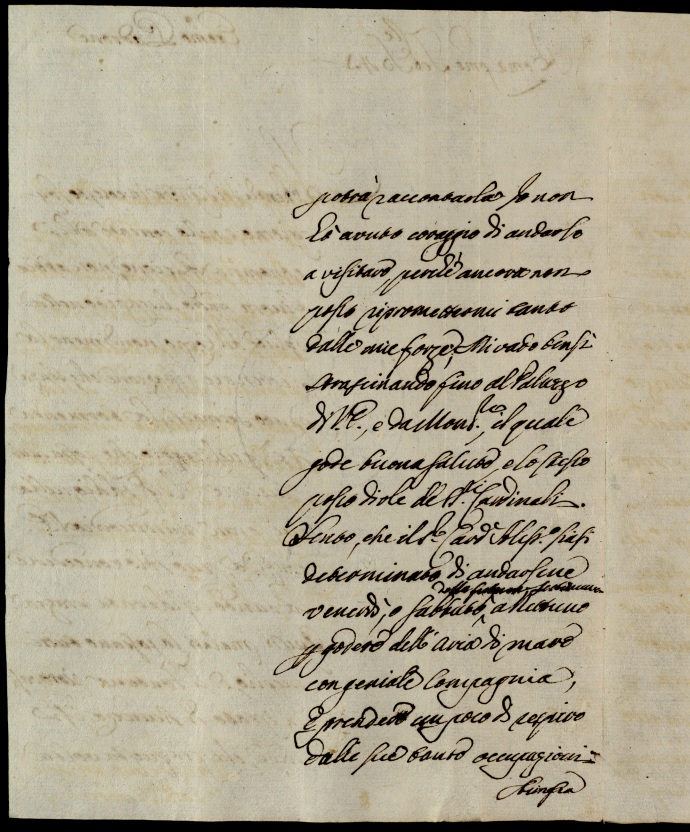 potrà raccontarla. Io non
hò avuto coraggio di andarlo
a visitare perche ancora non
posso ripromettermi tanto
dalle mie forze, Mi vado bensì
strascinando fino al Palazzo
di V.E., e da Mons.re, il quale
gode buona salute, e lo stesso
posso dirle de SS.ri Cardinali.
Sento, che il S.r Card. Aless.o siasi
determinato di andarsene
della settimana
venerdì, o sabbato, a Nettuno
p godere dell'aria di mare
con geniale Compagnia,
E prendere un poco di respiro
dalle sue tante occupazioni